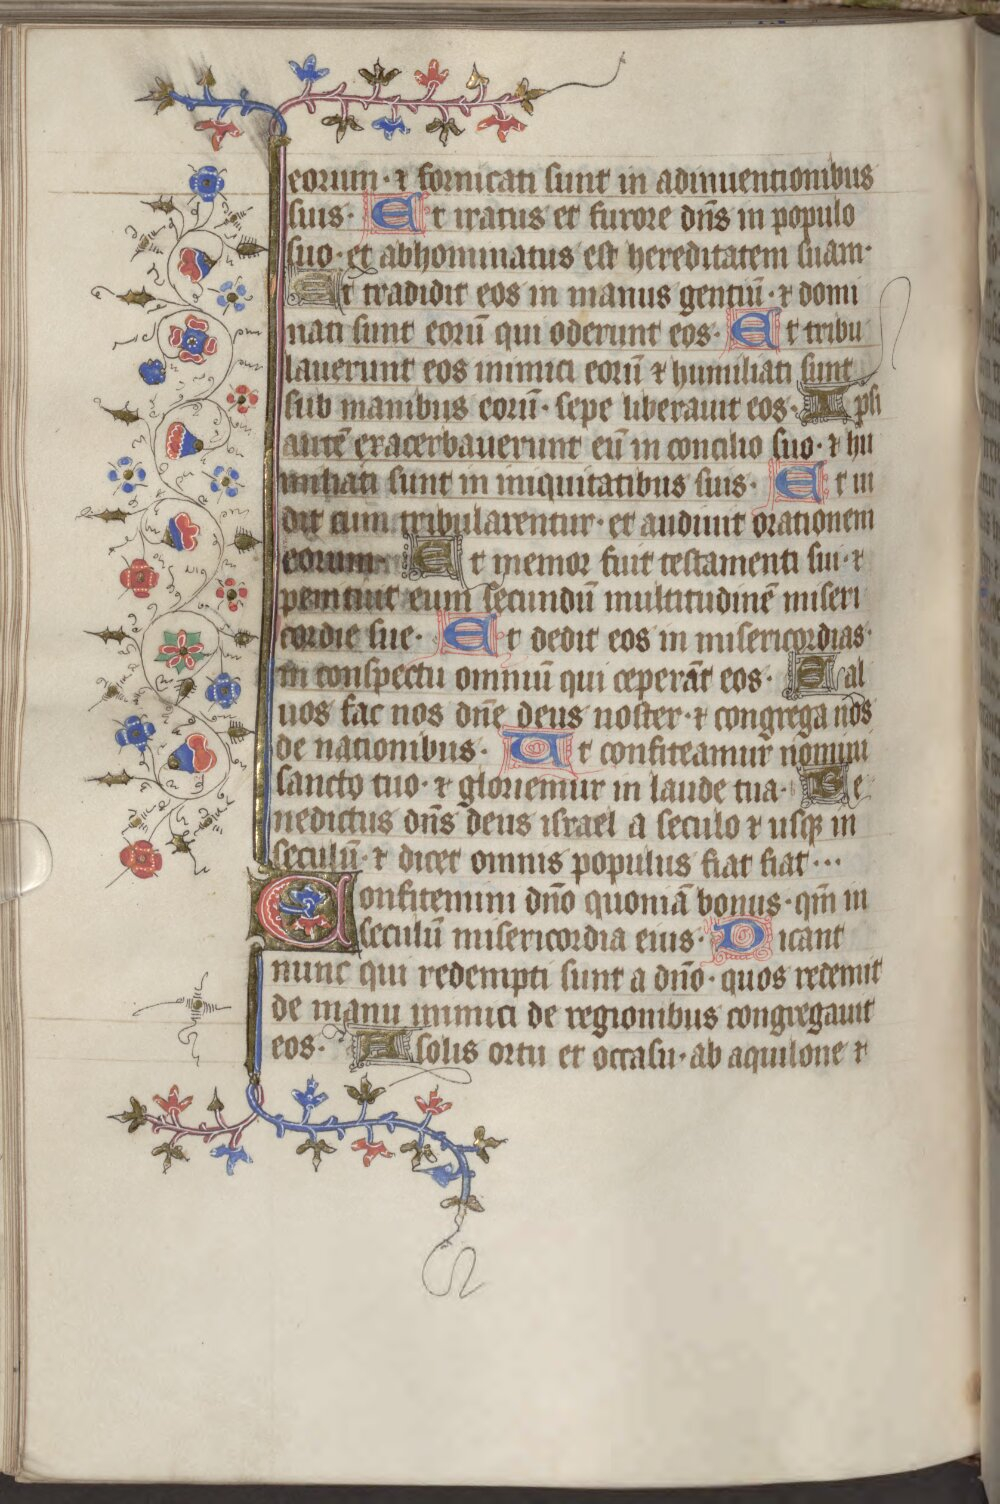 eorum · ⁊ fornicati sunt in adinuentionibus
suis · Et iratus et furore dn̄s in populo
suo · et abhominatus est hereditatem suam ·
Et tradidit eos in manus gentiū · ⁊ domi
nati sunt eorū qui oderunt eos · Et tribu
lauerunt eos inimici eorū ⁊ humiliati sunt
sub manibus eorū · sepe liberauit eos · Ipsi
autē exacerbauerunt eū in concilio suo · ⁊ hu
miliati sunt in iniquitatibus suis · Et ui
dit cum tribularentur · et audiuit orationem
eorum · Et memor fuit testamenti sui · ⁊
penituit eum secundū multitudinē miseri
cordie sue · Et dedit eos in misericordias ·
in conspectu omniū qui ceperāt eos · Sal
uos fac nos dn̄e deus noster · ⁊ congrega nos
de nationibus · Ut confiteamur nomini
sancto tuo · ⁊ gloriemur in laude tua · Be
nedictus dn̄s deus israel a seculo ⁊ usqꝫ in
seculū · ⁊ dicet omnis populus fiat fiat ···
Confitemini dn̄o quoniā bonus · qm̄ in
seculū misericordia eius · Dicant
nunc qui redempti sunt a dn̄o · quos redemit
de manu inimici de regionibus congregauit
eos · A solis ortu et occasu · ab aquilone ⁊